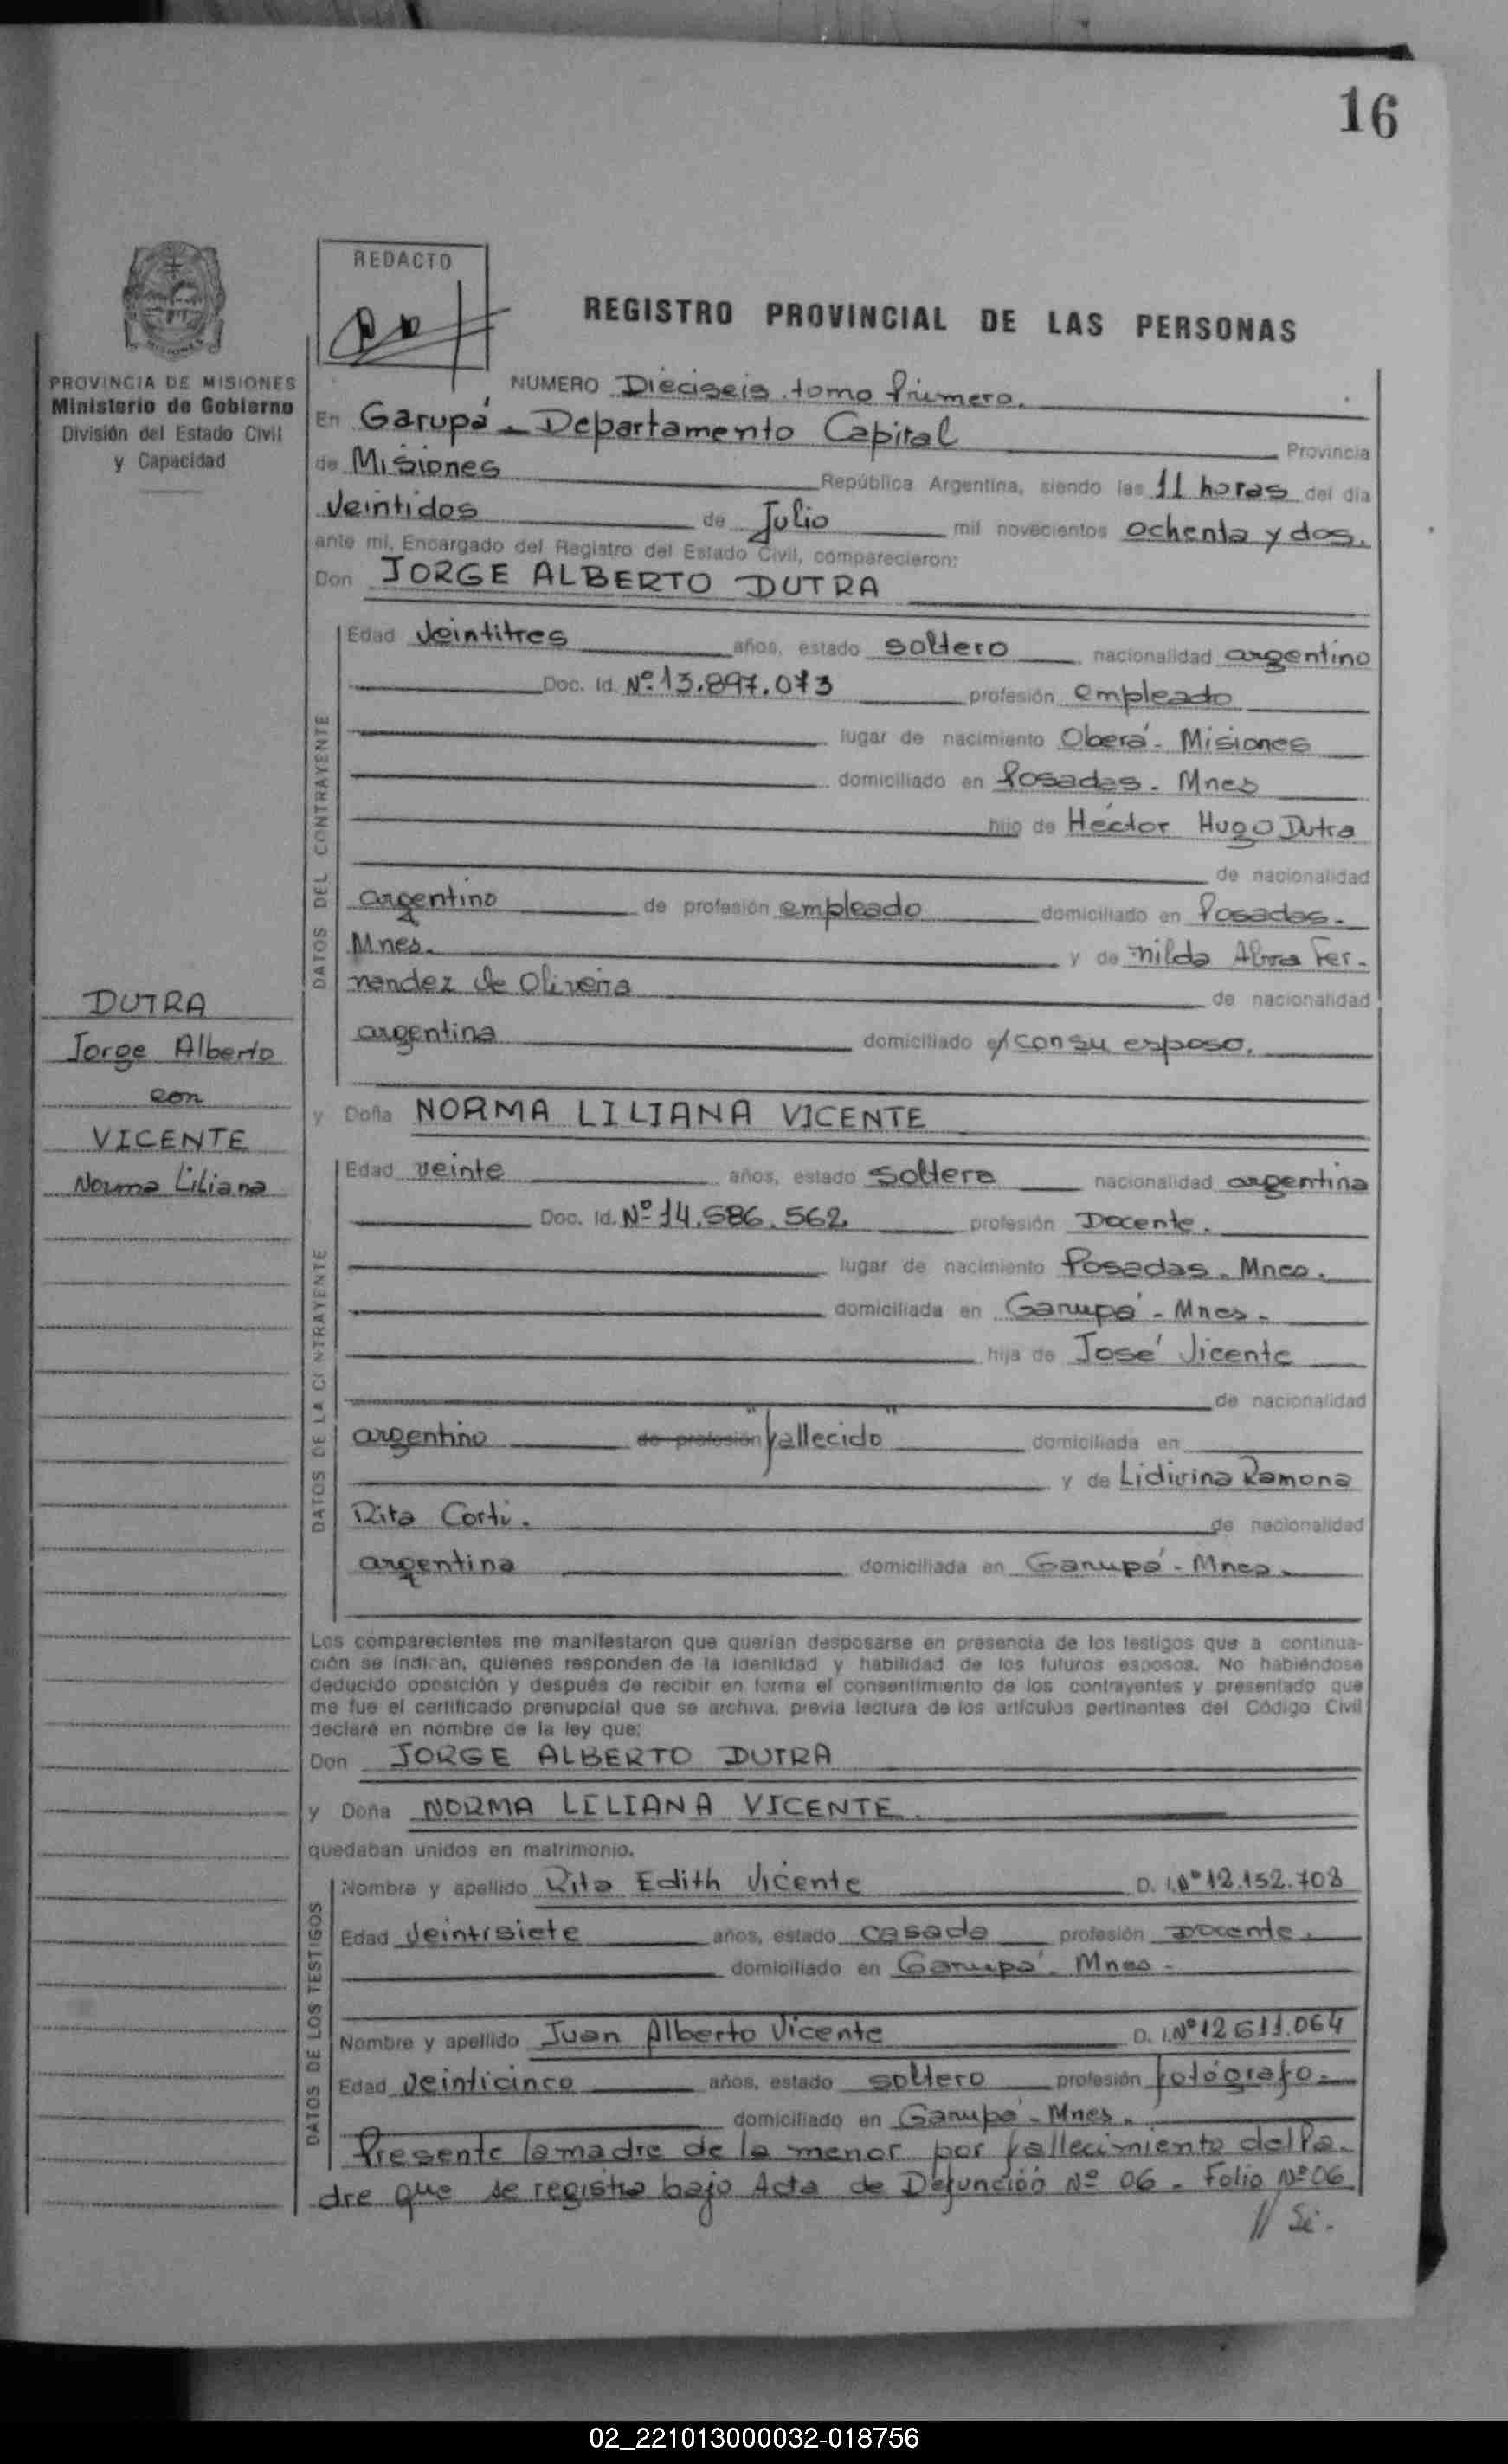 16
REDACTO
REGISTRO PROVINCIAL DE LAS PERSONAS
PROVINCIA DE MISIONES
Ministerio de Gobierno
División del Estado Civil
y Capacidad
NUMERO Dieciseis. tomo Primero.
En Garupá - Departamento Capital Provincia
de Misiones República Argentina, siendo las 11 horas del día
veintidos de Julio mil novecientos ochenta y dos.
ante mí, Encargado del Registro del Estado Civil, comparecieron:
Don JORGE ALBERTO DUTRA
DATOS DEL CONTRAYENTE
Edad Veintitres años, estado soltero nacionalidad argentino
Doc. Id. Nº 13.897.073 profesión empleado
lugar de nacimiento Oberá - Misiones
domiciliado en Posadas. Mnes
hijo de Héctor Hugo Dutra
de nacionalidad
argentino de profesión empleado domiciliado en Posadas.
Mnes. y de Nilda Fer-
nandez de Oliveira de nacionalidad
argentina domiciliado e/ con su esposo.
DUTRA
Jorge Alberto
con
VICENTE
Norma Liliana
y Doña NORMA LILIANA VICENTE
DATOS DE LA CONTRAYENTE
Edad veinte años, estado soltera nacionalidad argentina
Doc. Id. Nº 14.586.562 profesión Docente.
lugar de nacimiento Posadas. Mnes.
domiciliada en Garupá - Mnes -
hija de José Vicente
de nacionalidad
argentino de profesión "fallecido" domiciliada en
y de Lidivina Ramona
Rita Corti. de nacionalidad
argentina domiciliada en Garupá - Mnes.
Los comparecientes me manifestaron que querían desposarse en presencia de los testigos que a continua-
ción se indican, quienes responden de la identidad y habilidad de los futuros esposos. No habiéndose
deducido oposición y después de recibir en forma el consentimiento de los contrayentes y presentado que
me fue el certificado prenupcial que se archiva, previa lectura de los artículos pertinentes del Código Civil
declaré en nombre de la ley que:
Don JORGE ALBERTO DUTRA
y Doña NORMA LILIANA VICENTE.
quedaban unidos en matrimonio.
DATOS DE LOS TESTIGOS
Nombre y apellido Rita Edith Vicente D. I. Nº 12.152.708
Edad Veintisiete años, estado casada profesión Docente.
domiciliado en Garupá - Mnes -
Nombre y apellido Juan Alberto Vicente D. I. Nº 12 611.064
Edad Veinticinco años, estado soltero profesión fotógrafo -
domiciliado en Garupá - Mnes.
Presente la madre de la menor por fallecimiento del Pa-
dre que se registra bajo Acta de Defunción Nº 06 - Folio Nº 06
// Si.
02_221013000032-018756